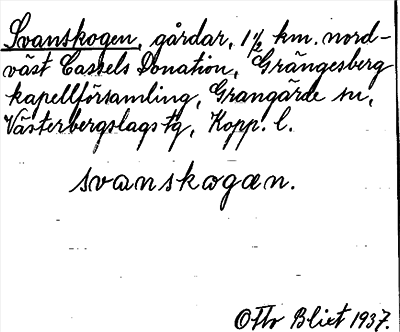 Svanskogen, gårdar, 1½ km. nord-
väst Cassels Donation, Grängesberg
kapellförsamling, Grangärde sn,
Västerbergslags tg, Kopp. l.
svanskogæn.
Otto Blixt 1937.